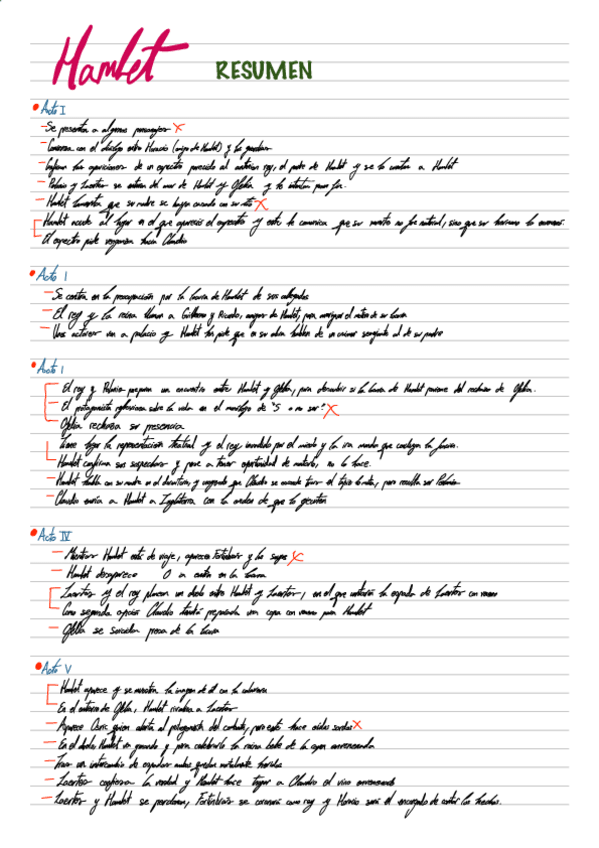 Hamlet RESUMEN
Acto I
- Se presenta a algunos personajes x
- Comienza con el diálogo entre Horacio (amigo de Hamlet) y los guardias
- las apariciones de un espectro parecido al anterior rey, el padre de Hamlet y se lo cuentan a Hamlet
- Polonio y Laertes se enteran del amor de Hamlet y Ofelia y lo intentan
- Hamlet lamenta que su madre se haya casado con su tío x
Hamlet accede al lugar en el que apareció el espectro y este le comunica que su muerte no fue natural, sino que su hermano lo envenenó.
El espectro pide venganza hacia Claudio
Acto I
- Se centra en la preocupación por la locura de Hamlet de sus allegados
- El rey y la reina llaman a Guillermo y Ricardo, amigos de Hamlet, para averiguar el motivo de su locura
- Unos actores van a palacio y Hamlet les pide que en su obra hablen de un crimen semejante al de su padre
Acto I
El rey y Polonio preparan un encuentro entre Hamlet y Ofelia, para descubrir si la locura de Hamlet proviene del rechazo de Ofelia.
- El protagonista reflexiona sobre la vida en el monólogo de "S o no ser" x
Ofelia rechaza su presencia
Tiene lugar la representación teatral y el rey invadido por el miedo y la ira manda que concluya la función.
Hamlet confirma sus sospechas y pese a tener oportunidad de matarlo, no lo hace.
- Hamlet habla con su madre en el dormitorio, y creyendo que Claudio se esconde tras el tapiz lo mata, pero resulta ser Polonio
- Claudio envía a Hamlet a Inglaterra con la orden de que lo ejecuten
Acto IV
- Mientras Hamlet está de viaje, aparece Fortinbrás y los suyos x
- Hamlet desaparece O en la locura
Laertes y el rey planean un duelo entre Hamlet y Laertes, en el que untarán la espada de Laertes con veneno
Como segunda opción Claudio tendrá preparada una copa con veneno para Hamlet
- Ofelia se suicida presa de la locura
Acto V
Hamlet aparece y se muestra la imagen de él con la calavera
En el entierro de Ofelia, Hamlet a Laertes
- Aparece Osric quien alerta al protagonista del combate, pero este hace oídos sordos x
- En el duelo, Hamlet va ganando y para celebrarlo la reina bebe de la copa envenenada
- Tras un intercambio de espadas ambos quedan mortalmente heridos
- Laertes confiesa la verdad y Hamlet hace tragar a Claudio el vino envenenado
- Laertes y Hamlet se perdonan, Fortinbrás se coronará como rey y Horacio será el encargado de contar los hechos.